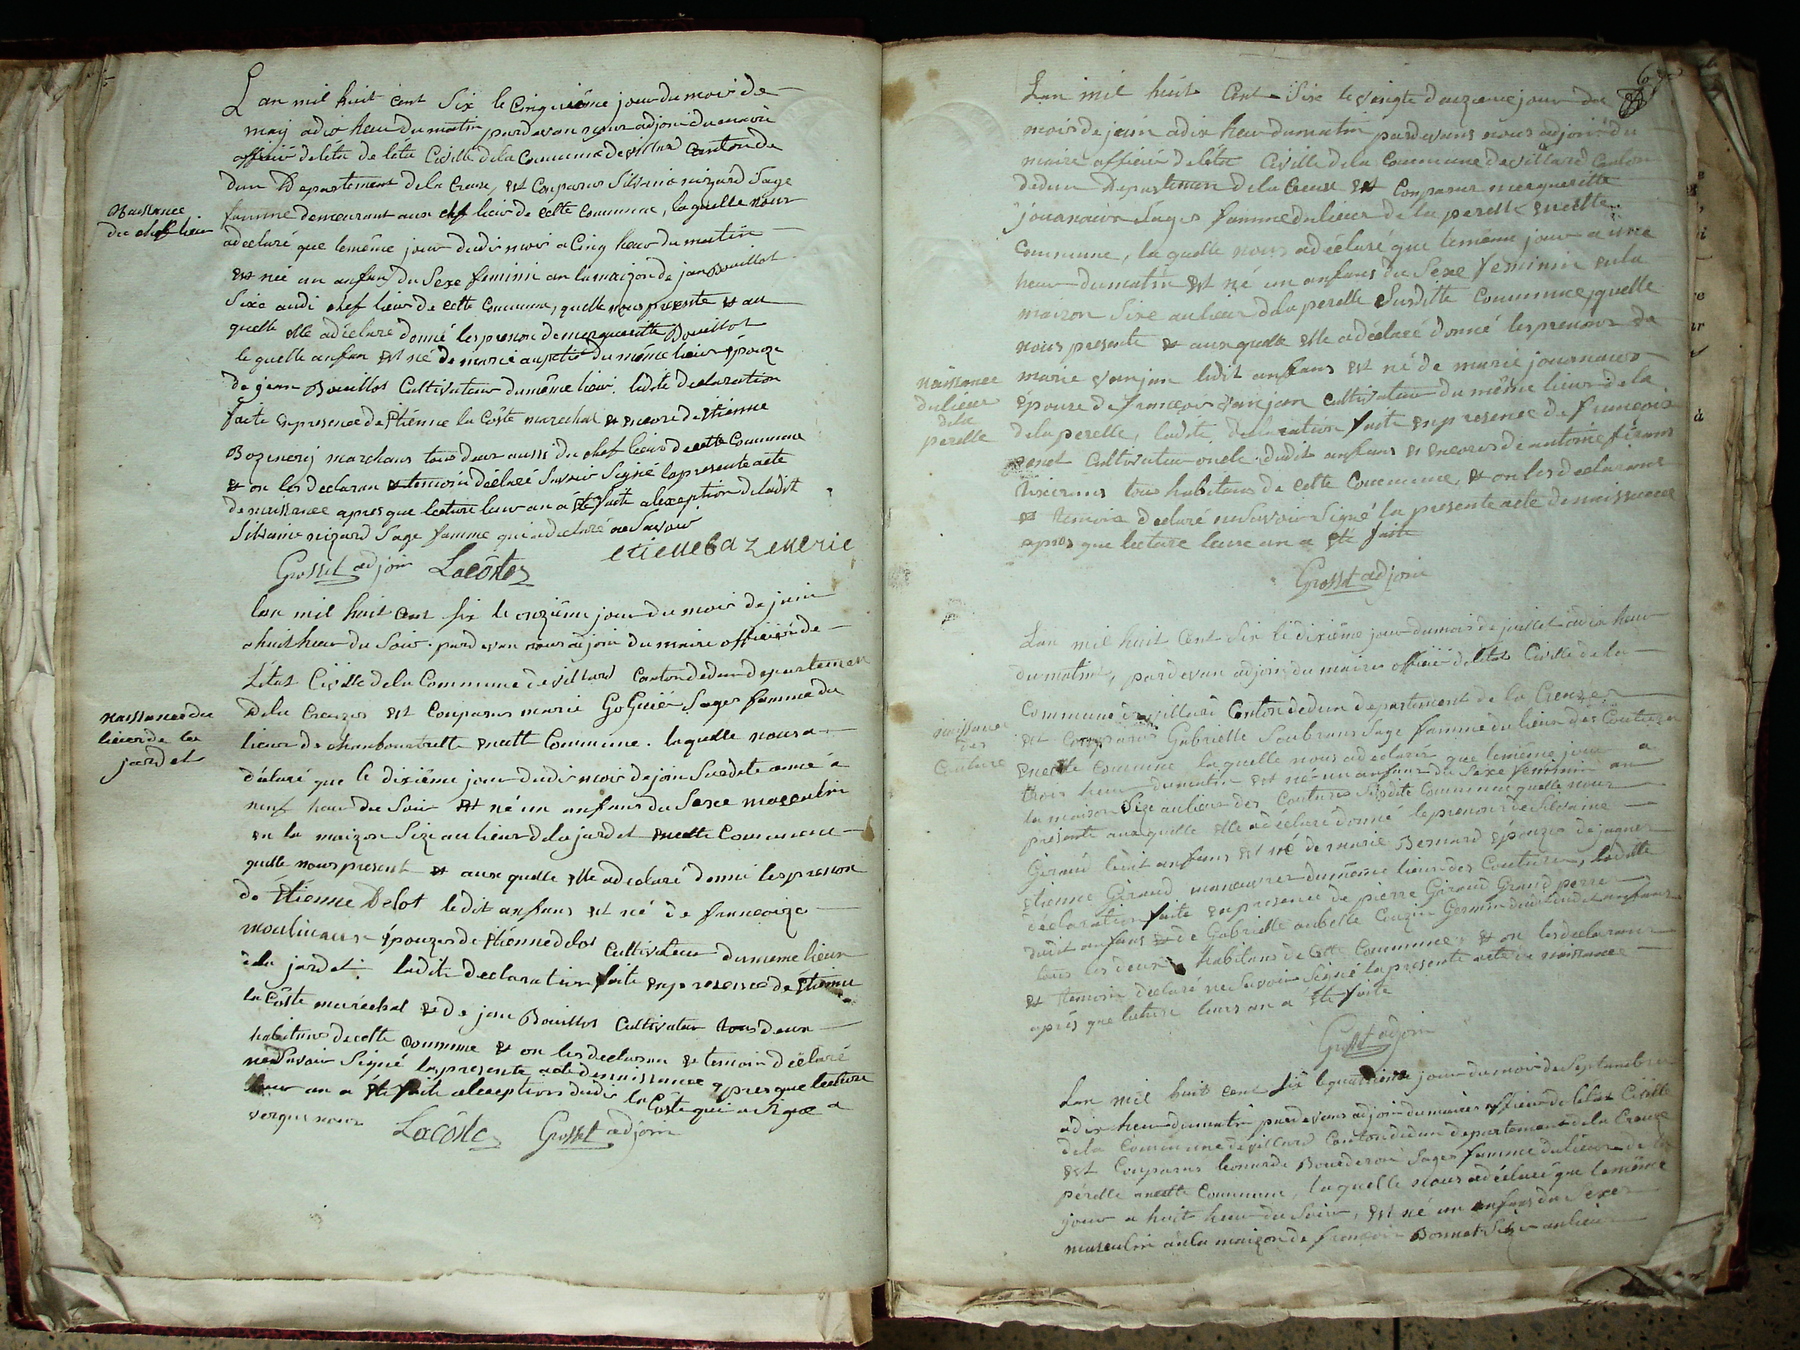 Lan mil huit Cent Six le Cinquième jour du mois de
may adix heur du matin pardevan nous adjoin du maire
officié deletà de leta Civille dela Commune de villard Canton de
dun Departement dela Creuse, est Comparus Silvaine nizard Sage
famme demeurant aux chef lieu de cette Commune, laquelle nous
adeclaré que lemême jour dudis mois a Cinq heur du matin
est né un anfan du Sexe feminin an lamaizon de jan Bouillot
Sixe audi chef lieu de cette Commune, quelle nous presente et au
quelle elle adéclare donné les prenon de marguerite Bouillot
le quelle anfan est né de marie aupetit du même lieu épouze
de jean Bouillot Cultivateur du même lieu. ladite declaration
faite enpresence de Etienne la Côste marechal et encore de Etienne
Bazenery marchans tous deux aussi du chef lieu de cette Commune
et on les declaran et temoin déclaré Savoir Signé lapresente acte
de naissance apres que lecture leur an a été faite alexception deladit
Silvaine nizard Sage famme qui adeclaré ne Savoir
etienebazenerie
Grosset adjoin Lacôste
naissance
du chef lieu
lan mil huit Cent Six le onzième jour du mois de juin
a huit heur du Soir. pardevan nous adjoin du maire officié de
létat Civille dela Commune de villard Canton dedun departemen
dela Creuzes est Comparus marie GoGuié Sages famme du
lieux de chanbonbrette encette Commune. laquelle nous a
déclaré que le dixième jour dudis mois de join Susdite anné à
neuf heur du Soir est né un anfans du Sexe masculin
en la maizon Size au lieux dela jardet encette Commune
quelle nous present et aux quelle elle adeclaré donné les prenon
de Étienne Delot ledit anfans est né de francoize
moulinaux épouzes de Étienne delot Cultivateur dumeme lieux
dela jardet. ladite declaration faite enpresence de Étienne
la Côste maréchal et de jean Bouillot Cultivateur tous deux
habitans de cette Commune et on les declaran et temoin déclaré
ne Savoir Signé lapresente acte de naissance apres que lecture
leur an a été fait alexceptions dudis la Côste qui a Signé a
vecque nous Lacôste Grosset adjoin
naissance du
lieux de la
jardet
Lan mil huit Cent Six le vingte deuzieme jour du
mois de juin adix heur dumatin pardevans nous adjoin du
maire officié deléta Civille dela Commune devillard Canton
dedun Departemen dela Creuse est Comparus marguerite
journaux Sages famme dulieux de la perelle encette
Commune, la quelle nous adéclaré que lemême jour a une
heur dumatin est né un anfans du Sexe feminin enla
maizon Sixe au lieux dela perelle Susditte Commune quelle
nous presente et auxquelle elle adéclaré donné lesprenons de
marie vanjan ledit anfans est né de marie journaux
épouse de francois vanjan cultivateur du même lieux dela
dela perelle, ladite declaration faite enpresence de francois
penot Cultivateur oncle dudit anfans et encores de antoine
tous habitans de cette Commune, et on les declarans
et temoin declaré nesavoir Signé la presente acte denaissance
apres que lecture leure an a été faite
Grosset adjoin
naissance
dulieux
dela
perelle
Lan mil huit Cent Six le dixième jour dumois de juillet adix heur
du matin, pardevan adjoin du maire officié deletat Civille dela
Commune de villard Canton dedun departement de la Creuzes
est Comparus Gabrielle Soubrans Sage famme du lieux des Couture
encette Commune laquelle nous adeclaré que lemême jour a
trois heur dumatin est né un anfans du Sexe feminin en
la maison Size aulieux des Couture Susdite Commune quelle nous
présente auxquelle elle adéclaré donné leprenon de Silvaine
Giraud ledit anfans est né de marie Bernard épouze de
Etienne Giraud manœuvre dumême lieux des Couture, ladite
declaration faite enpresence de pierre Giraud Grand perre
dudit anfans et de Gabrielle aubelle Couzin Germin dudit anfans
tous les deux habitans de cette Commune, et on les declaran
et temoin declaré ne Savoir Signé la presente acte de naissance
aprés que lecture leurs an a été faite
Grosset adjoin
naissance
des
Couture
Lan mil huit cent Six le quatrieme jour du mois de Septembre
adix heur dumatin pardevans adjoin dumaires officié de letat Civille
dela Commune devillard Canton dedun departement dela Creuze
est Comparus leonarde Bourderon Sages famme dulieux de la
pérelle encette Commune, laquelle nous adéclaré que lemême
jour a huit heur du Soir, est né un anfans du Sexes
masculin anla maizon de françois Bonnet Size aulieux